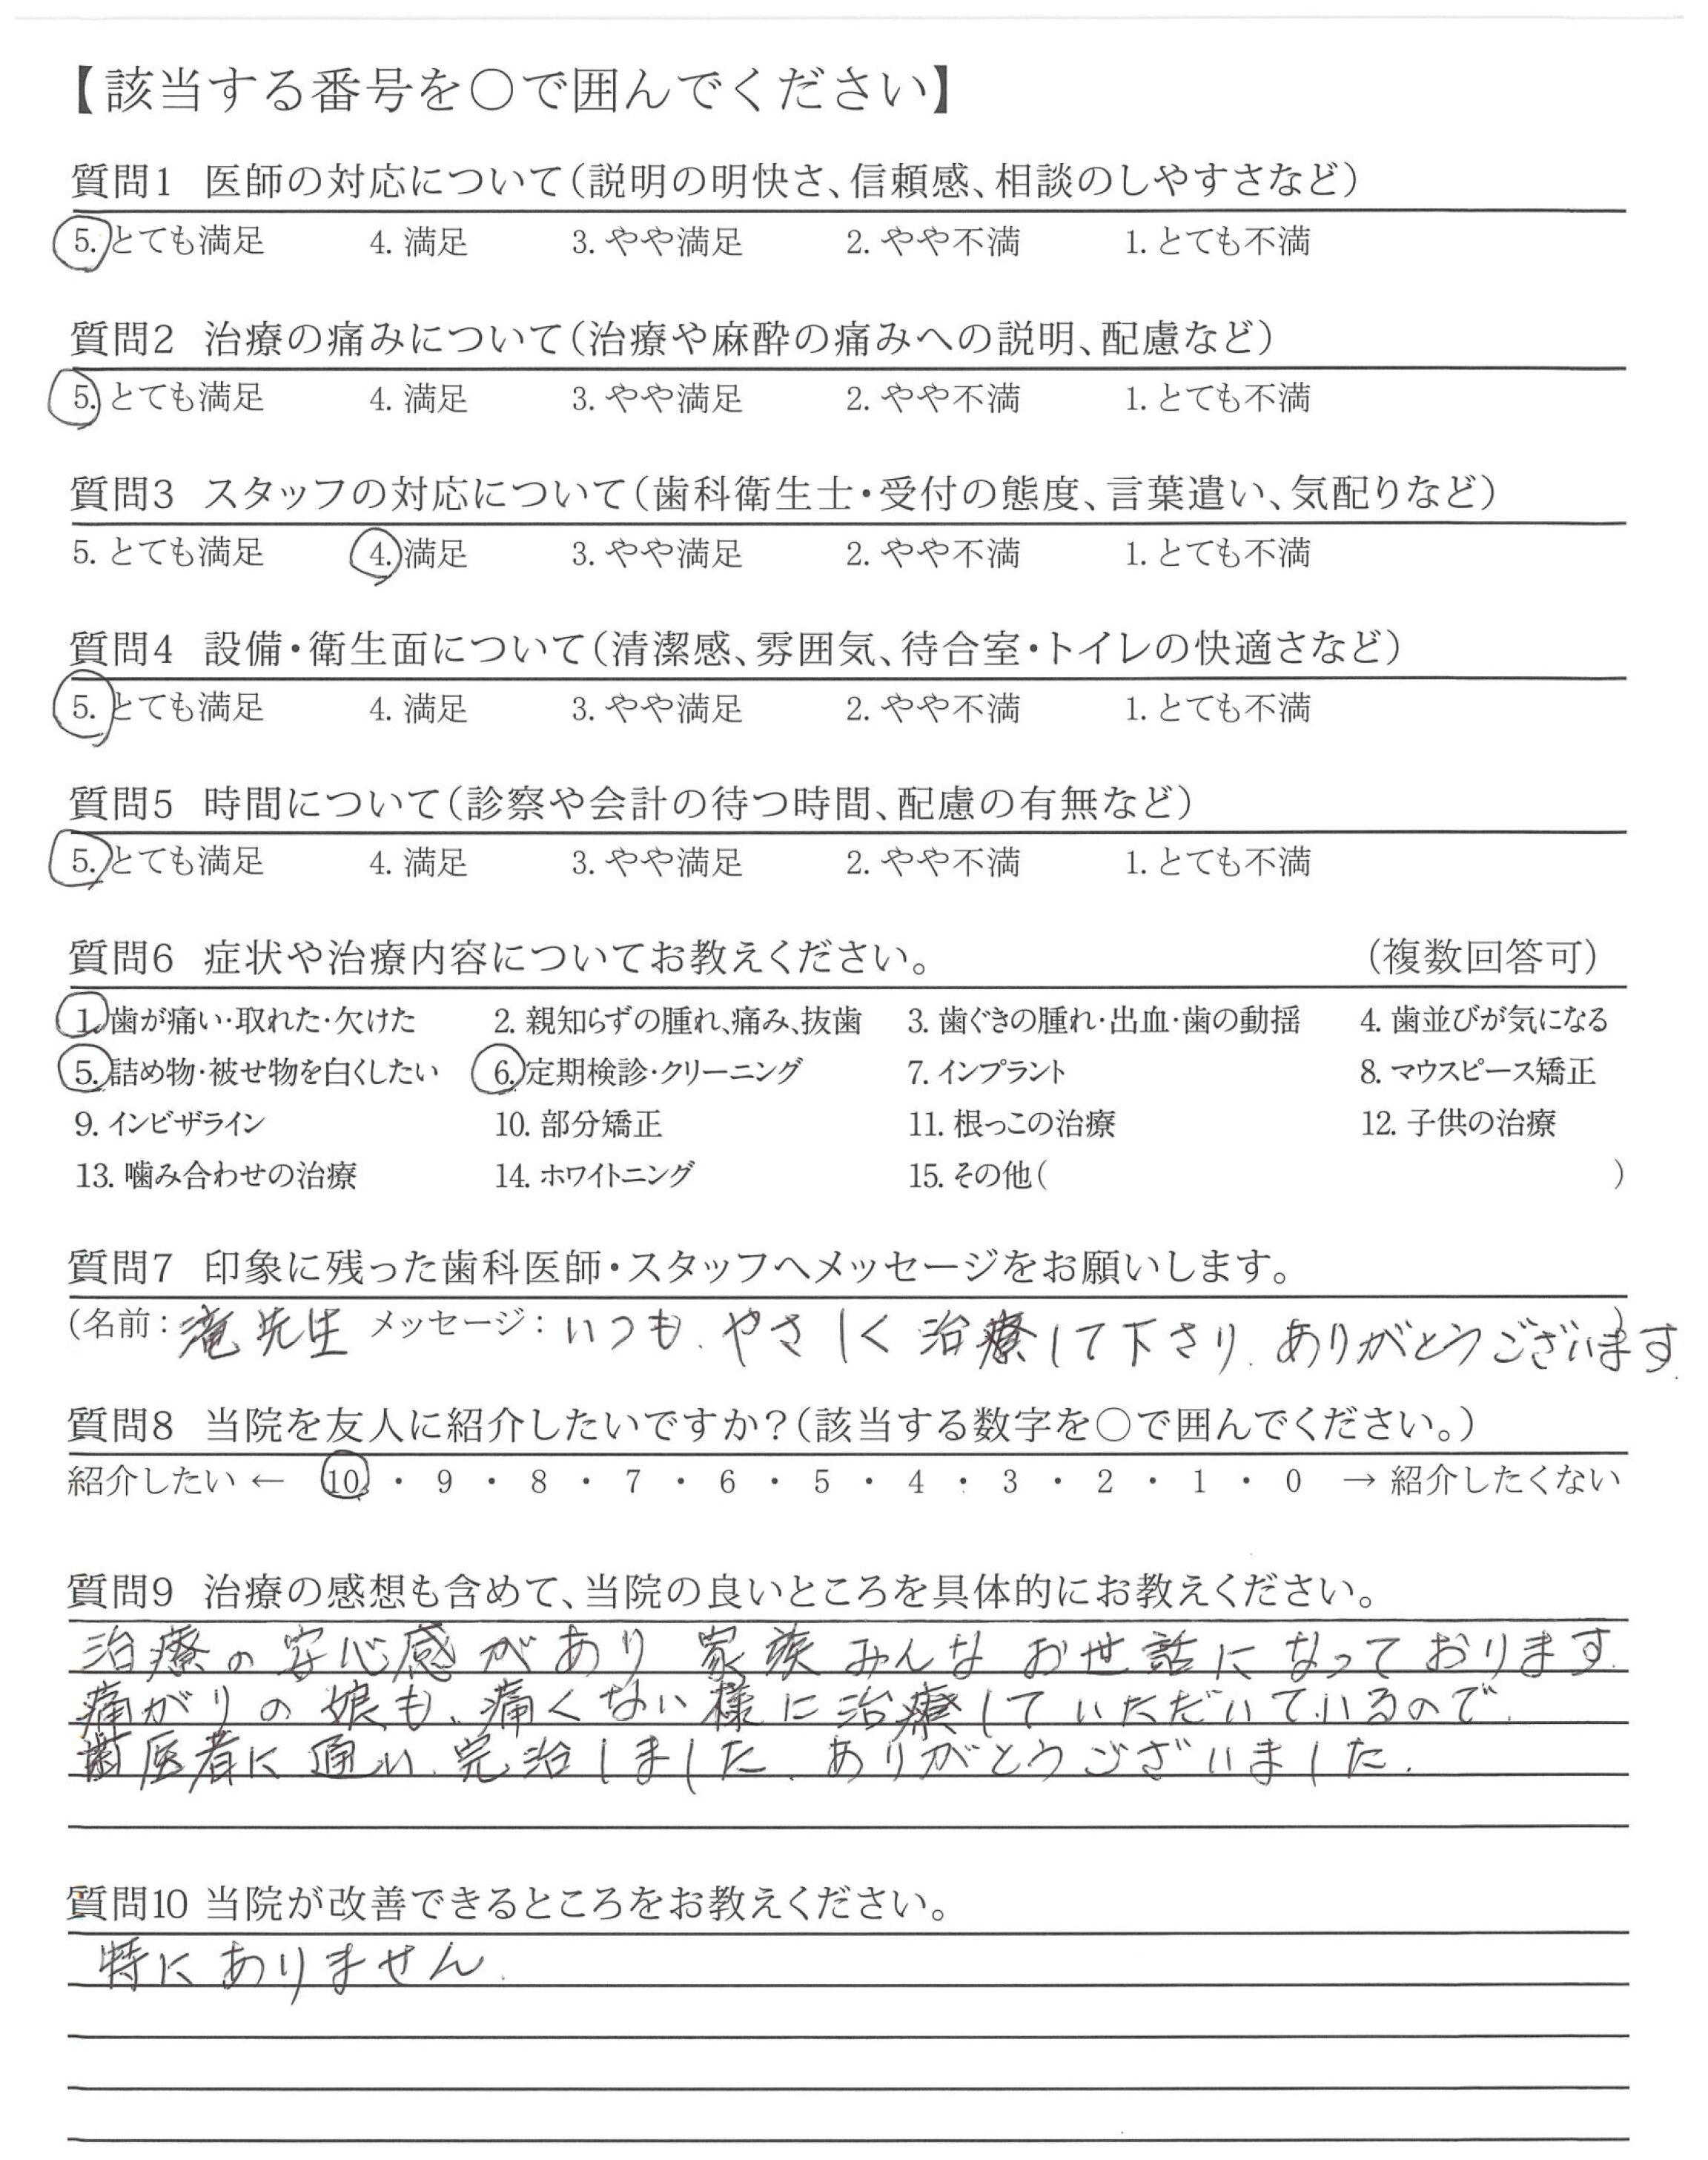 【該当する番号を〇で囲んでください】
質問1 医師の対応について（説明の明快さ、信頼感、相談のしやすさなど）
5. とても満足 4. 満足 3. やや満足 2. やや不満 1. とても不満
質問2 治療の痛みについて（治療や麻酔の痛みへの説明、配慮など）
5. とても満足 4. 満足 3. やや満足 2. やや不満 1. とても不満
質問3 スタッフの対応について（歯科衛生士・受付の態度、言葉遣い、気配りなど）
5. とても満足 4. 満足 3. やや満足 2. やや不満 1. とても不満
質問4 設備・衛生面について（清潔感、雰囲気、待合室・トイレの快適さなど）
5. とても満足 4. 満足 3. やや満足 2. やや不満 1. とても不満
質問5 時間について（診察や会計の待つ時間、配慮の有無など）
5. とても満足 4. 満足 3. やや満足 2. やや不満 1. とても不満
質問6 症状や治療内容についてお教えください。 （複数回答可）
1. 歯が痛い・取れた・欠けた 2. 親知らずの腫れ、痛み、抜歯 3. 歯ぐきの腫れ・出血・歯の動揺 4. 歯並びが気になる
5. 詰め物・被せ物を白くしたい 6. 定期検診・クリーニング 7. インプラント 8. マウスピース矯正
9. インビザライン 10. 部分矯正 11. 根っこの治療 12. 子供の治療
13. 噛み合わせの治療 14. ホワイトニング 15. その他（ ）
質問7 印象に残った歯科医師・スタッフへメッセージをお願いします。
（名前：滝先生 メッセージ：いつも、やさしく治療して下さり、ありがとうございます）
質問8 当院を友人に紹介したいですか？（該当する数字を〇で囲んでください。）
紹介したい ← 10 ・ 9 ・ 8 ・ 7 ・ 6 ・ 5 ・ 4 ・ 3 ・ 2 ・ 1 ・ 0 → 紹介したくない
質問9 治療の感想も含めて、当院の良いところを具体的にお教えください。
治療の安心感があり 家族みんなお世話になっております.
痛がりの娘も、痛くない様に治療していただいているので、
歯医者に通い、完治しました、ありがとうございました.
質問10 当院が改善できるところをお教えください。
特にありません.